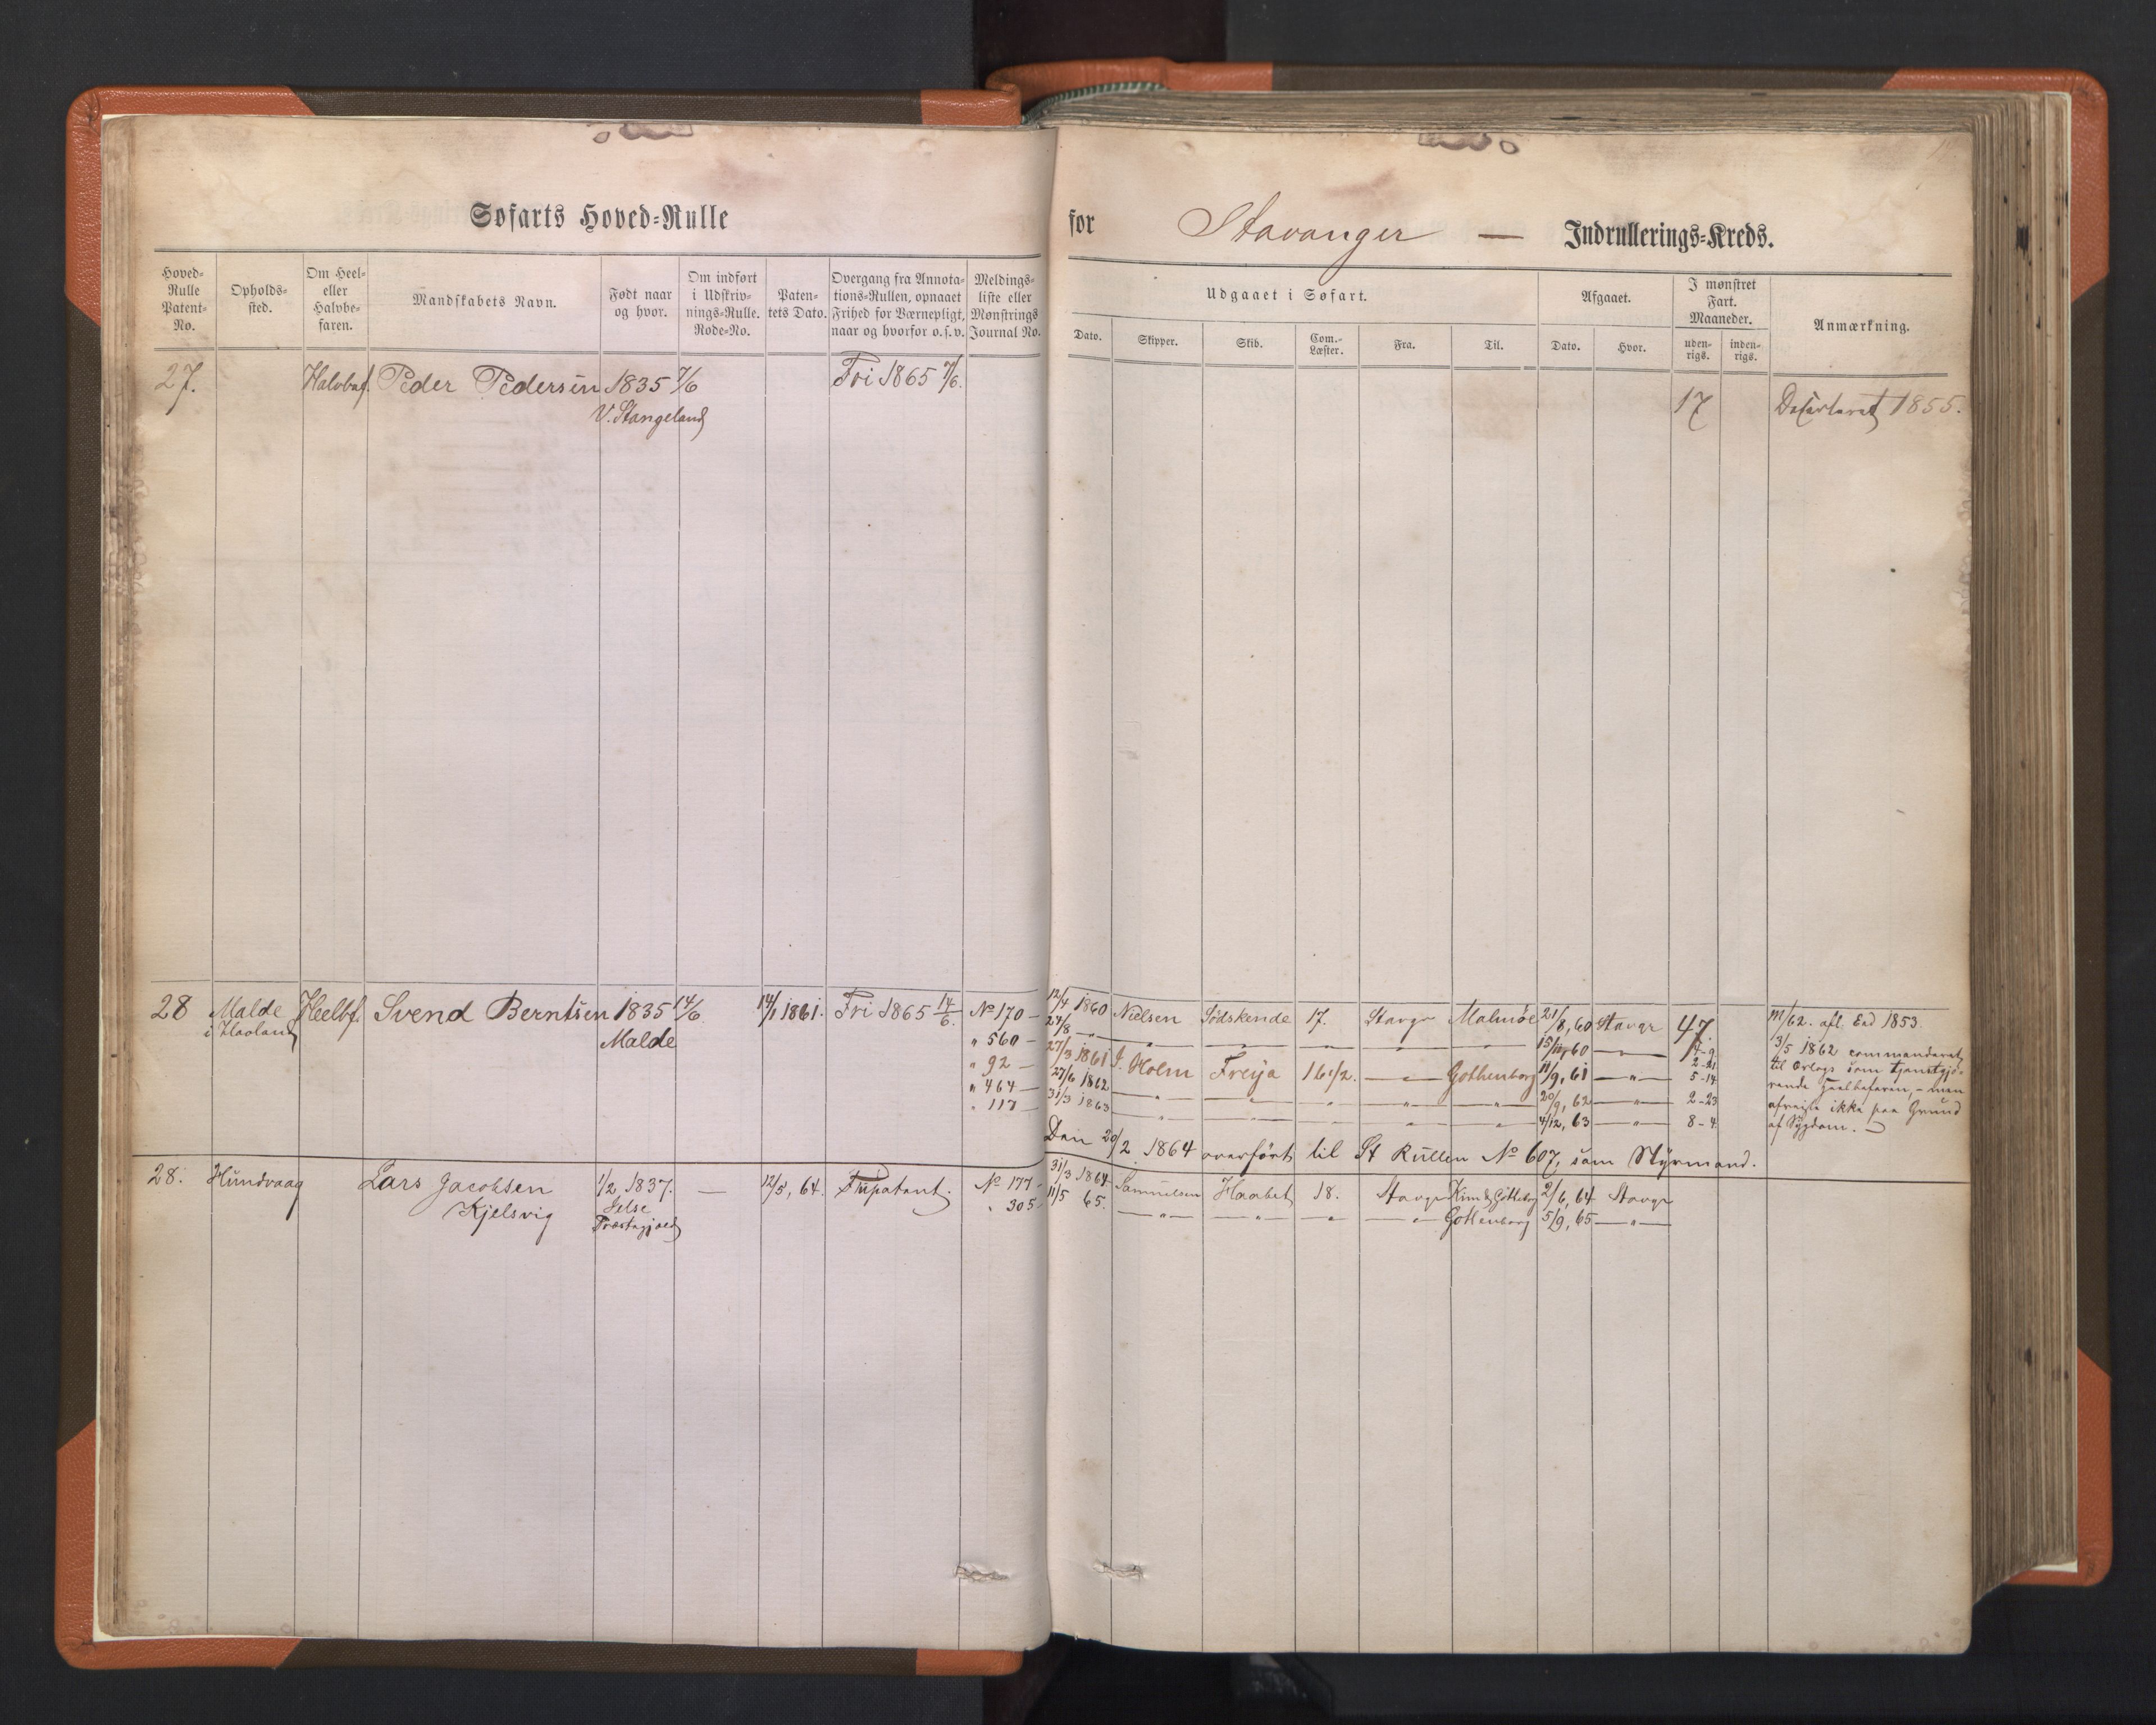 Søfarts Hoved-Rulle
for Stavanger — Indrullerings-Kreds.
Hoved-Rulle Patent-No.
Opholds-sted.
Om Heel- eller Halvbe-faren.
Mandskabets Navn.
Født naar og hvor.
Om indført i Udskriv-nings-Rulle. Rode-No.
Paten-tets Dato.
Overgang fra Annota-tions-Rullen, opnaaet Frihed for Værnepligt, naar og hvorfor o.s.v.
Meldings-liste eller Mønstrings Journal No.
Udgaaet i Søfart.
Dato.
Skipper.
Skib.
Com.-Læster.
Fra.
Til.
Afgaaet.
Dato.
Hvor.
I mønstret Fart. Maaneder.
uden-rigs.
inden-rigs.
Anmærkning.
27. Halvbef. Peder Pedersen 1835 7/6 Fri 1865 7/6. 17 Deserteret 1855.
V. Stangeland
28 Malde Heelbf. Svend Berntsen 1835 14/6 14/1 1861. Fri 1865 14/6. No 170 - 12/4 1860 Nielsen Södskende 17. Stavgr Malmöe 21/8, 60 Stavgr 47. 11/62. afl. Eed 1853.
i Haaland Malde " 560 - 24/8 — " — " — " — " — " 15/11, 60 — " 4-9 3/5 1862 commanderet
" 92 - 27/3 1861 J. Holm Freya 16 1/2. — " — Gothenborg 11/9, 61 — " — 5-14 til Orlogs som tjenstgjö-
" 464 - 27/6 1862 — " — " — " — " — " 20/9, 62 — " — 2-23 rende Heelbefaren, - men
" 117 - 31/3 1863 — " — " — " — " — " 4/12, 63 — " — 8-4 afreiste ikke paa Grund
af Sygdom. —
Den 20/2 1864 overfört til St Rullen No 607, som Styrmand.
28. Hundvaag Lars Jacobsen 1/2 1837. — 12/5, 64. Fripatent. No 177 - 31/3 1864 Samuelsen Haabet 18. Stavgr Kim & Götteborg 2/6, 64 Stavgr
Kjelsvig Jelse " 305 - 11/5 65. — " — " — " — " — Gottenborg 5/9, 65 — " —
Præstegjæld